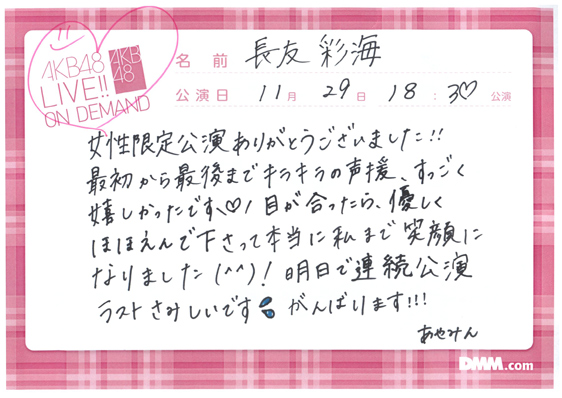 AKB48
LIVE!!
ON DEMAND
AKB
48
名前 長友 彩海
公演日 11月 29日 18:30 公演
女性限定公演ありがとうございました!!
最初から最後までキラキラの声援、すっごく
嬉しかったです♡!目が合ったら、優しく
ほほえんで下さって本当に私まで笑顔に
なりました(^^)!明日で連続公演
ラストさみしいです がんばります!!!
あやみん
DMM.com